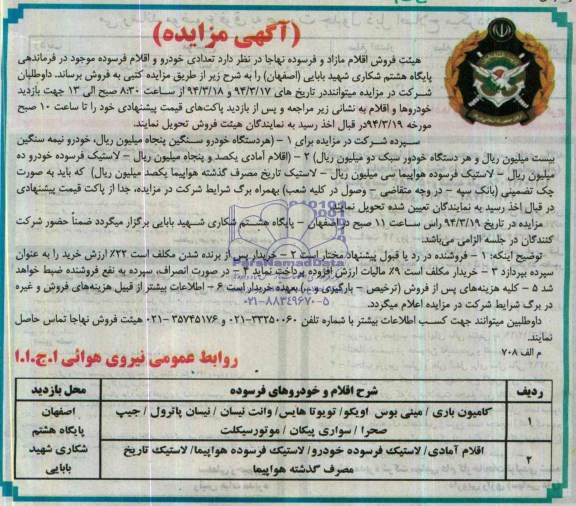 (آگهی مزایده)
هیئت فروش اقلام مازاد و فرسوده نهاجا در نظر دارد تعدادی خودرو و اقلام فرسوده موجود در فرماندهی
پایگاه هشتم شکاری شهید بابایی (اصفهان) را به شرح زیر از طریق مزایده کتبی به فروش برساند. داوطلبان
شرکت در مزایده میتوانند در تاریخ های ۹۴/۳/۱۷ و ۹۴/۳/۱۸ از ساعت ۸:۳۰ صبح الی ۱۳ جهت بازدید
خودروها و اقلام به نشانی زیر مراجعه و پس از بازدید پاکت‌های قیمت پیشنهادی خود را تا ساعت ۱۰ صبح
مورخه ۹۴/۳/۱۹ در قبال اخذ رسید به نمایندگان هیئت فروش تحویل نمایند.
سپرده شرکت در مزایده برای ۱ – (هر دستگاه خودرو سنگین پنجاه میلیون ریال، خودرو نیمه سنگین
بیست میلیون ریال و هر دستگاه خودور سبک دو میلیون ریال) ۲ – (اقلام آمادی یکصد و پنجاه میلیون ریال – لاستیک فرسوده خودرو ده
میلیون ریال – لاستیک فرسوده هواپیما سی میلیون ریال – لاستیک تاریخ مصرف گذشته هواپیما یکصد میلیون ریال) که باید به صورت
چک تضمینی (بانک سپه – در وجه متقاضی – وصول در کلیه شعب) بهمراه برگ شرایط شرکت در مزایده، جدا از پاکت قیمت پیشنهادی
در قبال اخذ رسید به نمایندگان تعیین شده تحویل نمایند.
مزایده در تاریخ ۹۴/۳/۱۹ راس ساعت ۱۱ صبح در اصفهان – پایگاه هشتم شکاری شهید بابایی برگزار میگردد ضمناً حضور شرکت
کنندگان در جلسه الزامی می‌باشد.
توضیح اینکه: ۱ – فروشنده در رد یا قبول پیشنهاد مختار است ۲ – خریدار پس از برنده شدن مکلف است ۲۲٪ ارزش خرید را به عنوان
سپرده بپردازد ۳ – خریدار مکلف است ۹٪ مالیات ارزش افزوده پرداخت نماید ۴ – در صورت انصراف، سپرده به نفع فروشنده ضبط خواهد
شد ۵ – کلیه هزینه‌های پس از فروش (ترخیص – بارگیری و ...) بعهده خریدار است ۶ – اطلاعات بیشتر از قبیل هزینه‌های فروش و غیره
در برگ شرایط شرکت در مزایده اعلام میگردد.
داوطلبین میتوانند جهت کسب اطلاعات بیشتر با شماره تلفن ۳۳۲۵۰۰۶۰-۰۲۱ و ۳۵۷۴۵۱۷۶-۰۲۱ هیئت فروش نهاجا تماس حاصل
نمایند.
م الف ۷۰۸
روابط عمومی نیروی هوائی ا.ج.ا.ا
ParsNamadData
۰۲۱-۸۸۳۴۹۶۷۰-۵
ردیف	شرح اقلام و خودروهای فرسوده	محل بازدید
۱	کامیون باری / مینی بوس اویکو/ تویوتا هایس/ وانت نیسان / نیسان پاترول / جیپ
صحرا / سواری پیکان / موتورسیکلت
۲	اقلام آمادی/ لاستیک فرسوده خودرو/ لاستیک فرسوده هواپیما/ لاستیک تاریخ
مصرف گذشته هواپیما
اصفهان
پایگاه هشتم
شکاری شهید
بابایی